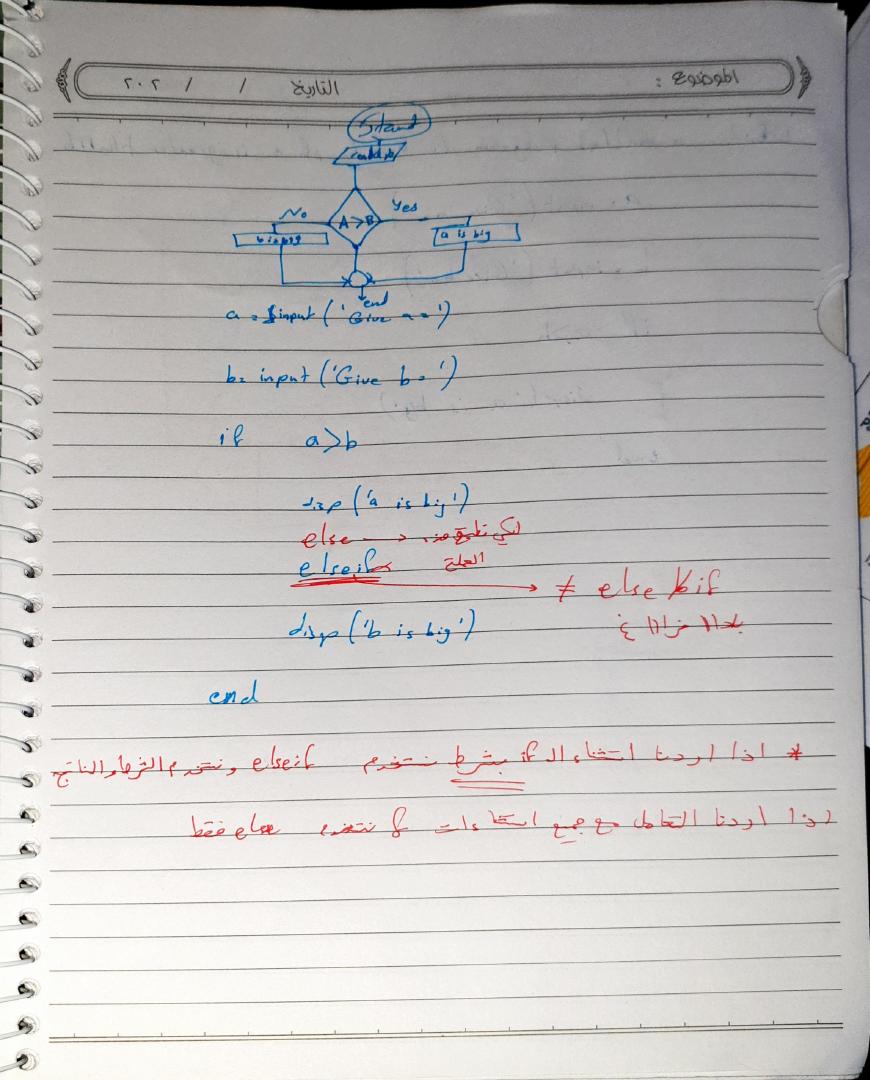 الموضوع :
التاريخ / / ٢٠٢
Start
No
A>B
Yes
b is big
a is big
end
a = input ('Give a = ')
b = input ('Give b = ')
if a>b
disp ('a is big')
else → لكي
elseif → ≠ else if
الحلة
disp ('b is big') بلا فراغ
end
* اذا اردنا استثناء الـ if بشرط نستخدم elseif ونستخدم الشرط والناتج
اذا اردنا التعامل مع جميع استثناءات if نستخدم else فقط